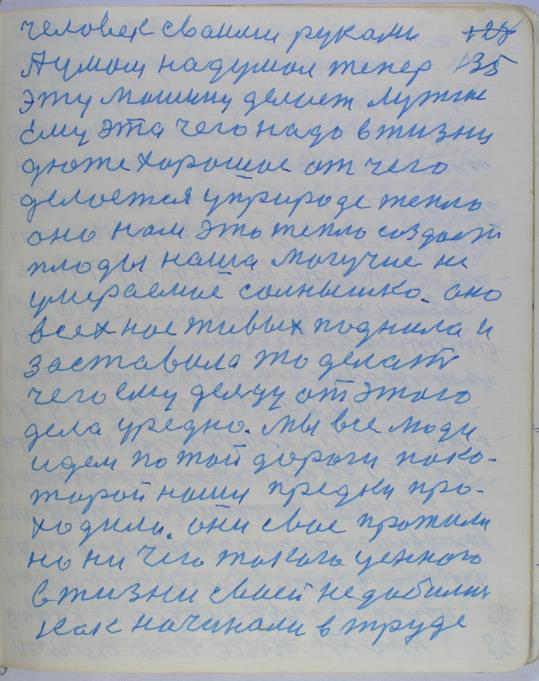 человек своими руками +27
Аумом надумал тепер 135
эту машину делает лутше
Ему эта чего надо в жизни
дюже хорошое от чего
делается уприроде тепло
оно нам это тепло создает
плоды наша могучие не
умераемое солнышко. оно
всех нас живых подняла и
заставила то делат
чего ему делцу от этого
дела уредно. мы все люди
идем по той дороги пако-
торой наши предки про-
ходили. они свое прожили
но ни чего такого ценного
в жизни своей не добились
как начинали в труде